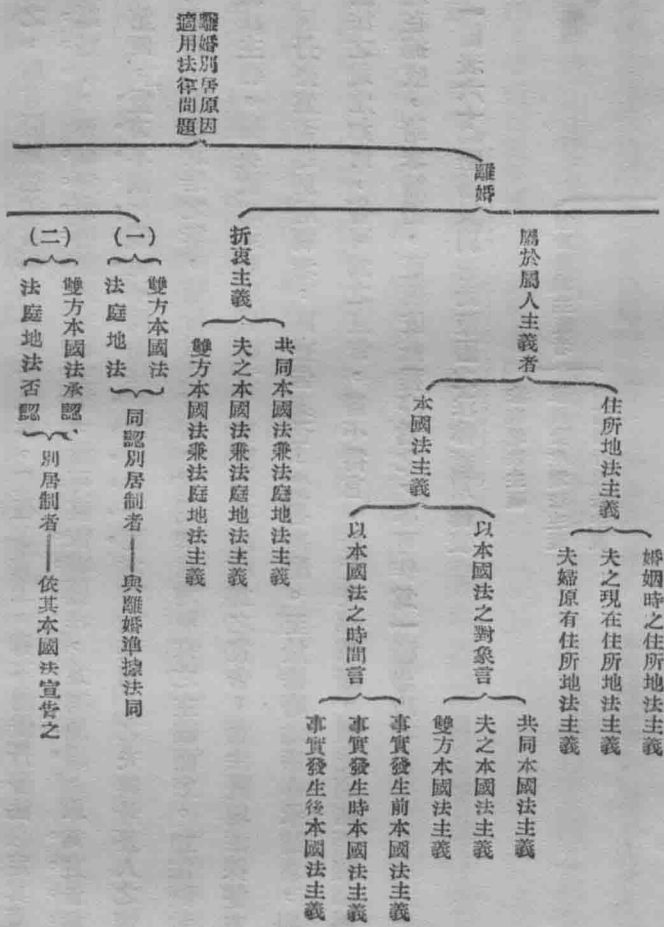 離婚別居原因
適用法律問題
離婚
屬於屬人主義者
住所地法主義
婚姻時之住所地法主義
夫之現在住所地法主義
夫婦原有住所地法主義
本國法主義
以本國法之對象言
共同本國法主義
夫之本國法主義
雙方本國法主義
以本國法之時間言
事實發生前本國法主義
事實發生時本國法主義
事實發生後本國法主義
折衷主義
共同本國法兼法庭地法主義
夫之本國法兼法庭地法主義
雙方本國法兼法庭地法主義
(一)
雙方本國法
法庭地法
同認別居制者——與離婚準據法同
(二)
雙方本國法承認
法庭地法否認
別居制者——依其本國法宣告之